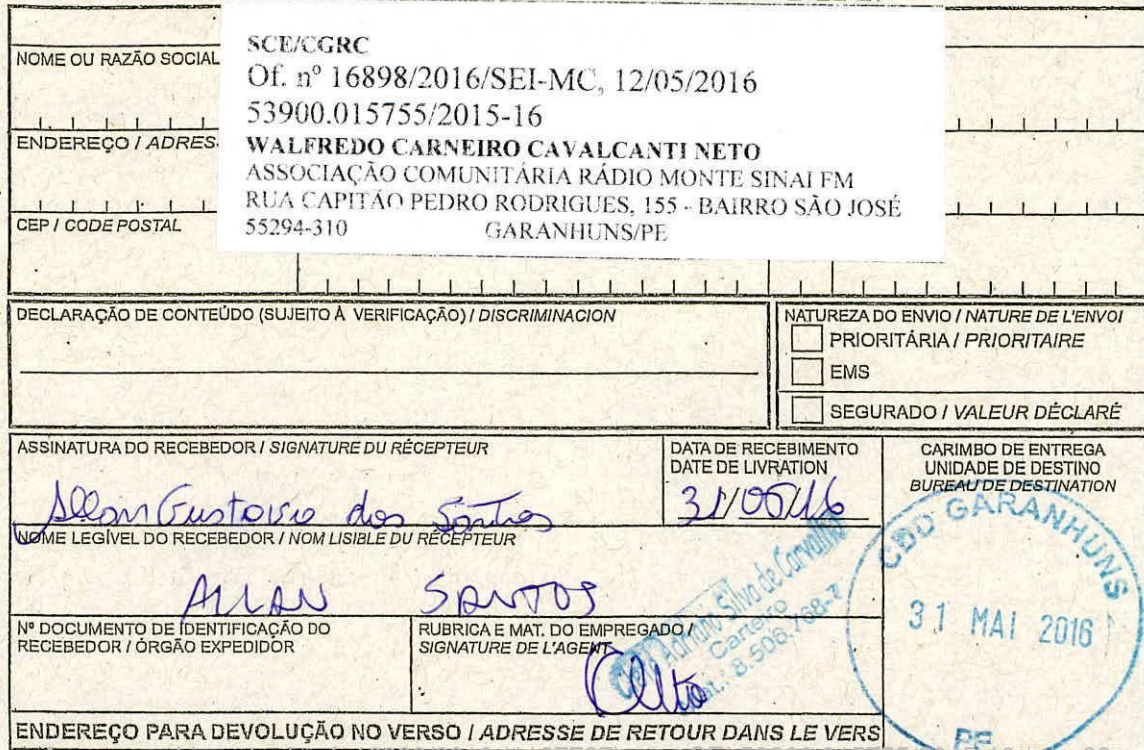 NOME OU RAZÃO SOCIAL
SCE/CGRC
Of. nº 16898/2016/SEI-MC, 12/05/2016
53900.015755/2015-16
WALFREDO CARNEIRO CAVALCANTI NETO
ASSOCIAÇÃO COMUNITÁRIA RÁDIO MONTE SINAI FM
RUA CAPITÃO PEDRO RODRIGUES, 155 - BAIRRO SÃO JOSÉ
55294-310 GARANHUNS/PE
ENDEREÇO / ADRES
CEP / CODE POSTAL
DECLARAÇÃO DE CONTEÚDO (SUJEITO À VERIFICAÇÃO) / DISCRIMINACION
NATUREZA DO ENVIO / NATURE DE L'ENVOI
PRIORITÁRIA / PRIORITAIRE
EMS
SEGURADO / VALEUR DÉCLARÉ
ASSINATURA DO RECEBEDOR / SIGNATURE DU RÉCEPTEUR
Allan Gustavo dos Santos
DATA DE RECEBIMENTO
DATE DE LIVRATION
31/05/16
CARIMBO DE ENTREGA
UNIDADE DE DESTINO
BUREAU DE DESTINATION
CDD GARANHUNS
31 MAI 2016
PE
NOME LEGÍVEL DO RECEBEDOR / NOM LISIBLE DU RÉCEPTEUR
ALLAN SANTOS
Nº DOCUMENTO DE IDENTIFICAÇÃO DO
RECEBEDOR / ÓRGÃO EXPEDIDOR
RUBRICA E MAT. DO EMPREGADO /
SIGNATURE DE L'AGENT
Adriano Silva de Carvalho
Carteiro
8.506.768-7
ENDEREÇO PARA DEVOLUÇÃO NO VERSO / ADRESSE DE RETOUR DANS LE VERS